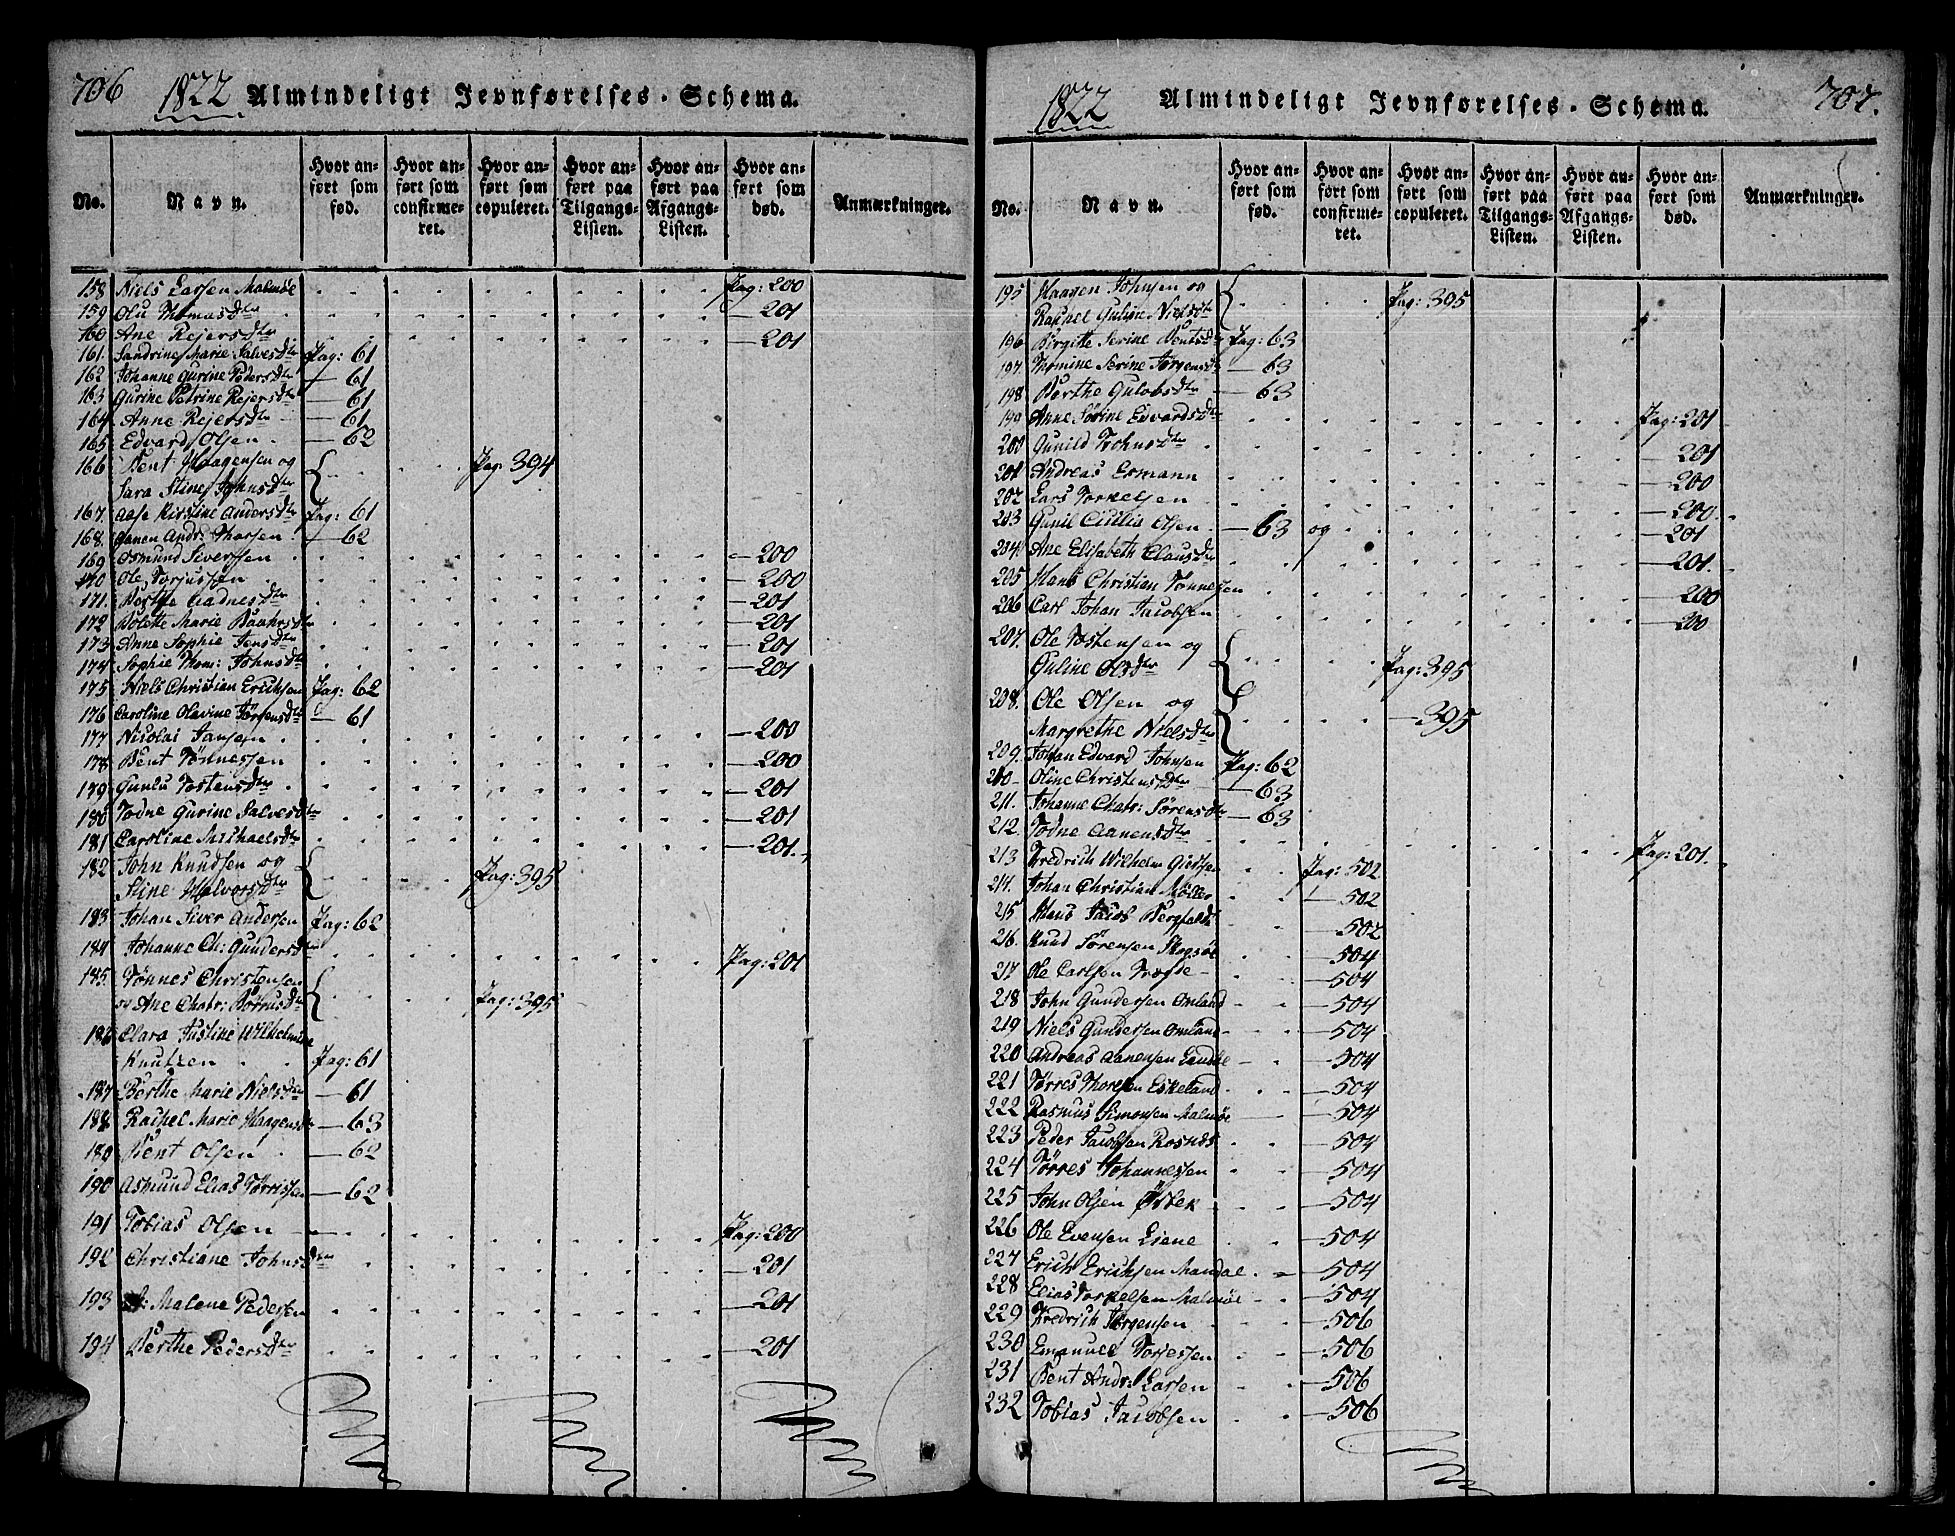 706 1822 Almindeligt Jevnførelses-Schema.
No. Navn. Hvor anført som fød. Hvor anført som confirmeret. Hvor anført som copuleret. Hvor anført paa Tilgangs-Listen. Hvor anført paa Afgangs-Listen. Hvor anført som død. Anmærkninger.
158 Niels Larsen Malmøe Pag: 200
159 Olu Thomasdtr — 201
160 Ane Rejersdtr — 201
161. Sandrine Marie Salvesdtr Pag: 61
162 Johanne Gurine Pedersdtr — 61
163 Gurine Petrine Rejersdtr — 61
164 Anne Rejersdtr — 61
165 Edvard Olsen — 62
166 Bent Haagensen og
Sara Stine Johnsdtr Pag: 394
167. Aase Kirstine Andersdtr Pag: 61
168. Aanen Andr: Thorsen — 62
169 Osmund Siverssen — 200
170 Ole Torjussen — 200
171. Berthe Aadnesdtr — 201
172 Bolette Marie Baahrsdtr — 201
173 Anne Sophie Jensdtr — 201
174 Sophie Thom: Johnsdtr — 201
175 Niels Christian Ericksen Pag: 62
176 Caroline Olavine Jørgensdtr — 61
177 Nicolai Jansen — 200
178 Bent Tønnessen — 200
179 Gunlu Tostensdtr — 201
180 Todne Gurine Salvesdtr — 201
181 Caroline Michaelsdtr — 201.
182 John Knudsen og
Stine Halvorsdtr Pag: 395
183 Johan Siver Andersen Pag: 62
184 Johanne Ch: Gundersdtr Pag: 201
185. Tønnes Christensen
og Ane Chatr: Børrusdtr Pag: 395
186 Clara Justine Wilhelmine
Knutzen Pag: 61
187 Berthe Marie Nielsdtr — 61
188 Rachel Marie Haagensdtr — 63
189 Bent Olsen — 62
190 Asmund Elias Tørrissen — 62
191 Tobias Olsen Pag: 200
192 Christiane Johnsdtr — 201
193 Malene Pedersen — 201
194 Berthe Pedersdtr — 201
1822 Almindeligt Jevnførelses-Schema. 707.
No. Navn. Hvor anført som fød. Hvor anført som confirmeret. Hvor anført som copuleret. Hvor anført paa Tilgangs-Listen. Hvor anført paa Afgangs-Listen. Hvor anført som død. Anmærkninger.
195 Haagen Johnsen og
Rachel Guline Nielsdtr Pag: 395
196 Birgitte Serine Berntsdtr Pag: 63
197 Thomine Serine Jørgensdtr — 63
198 Berthe Gulobsdtr — 63
199 Anne Sørine Edvardsdtr Pag: 201
200 Gunild Trohnsdtr — 201
201 Andreas Ermann — 200
202 Lars Torkelsen — 200.
203 Gunil Cicilie Olsen — 63 og — 201
204. Ane Elisabeth Clausdtr — 201.
205 Hans Christian Tønnesen — 200
206 Carl Johan Jacobsen — 200
207. Ole Tostensen og
Guline Olsdtr Pag: 395
208. Ole Olsen og
Margrethe Nielsdtr — 395
209. Johan Edvard Johnsen Pag: 62
210 Oline Christensdtr — 63
211. Johanne Chatr: Sørensdtr — 63
212. Todne Aanensdtr Pag: 201.
213 Fredrich Wilhelm Giertsen Pag: 502
214. Johan Christian Møller — 502
215 Hans Jacob Bergfeldt — 502
216. Knud Sørensen Skogsøe — 504
217 Ole Carlsen Trægde — 504
218 John Gundersen Omland — 504
219 Niels Gundersen Omland — 504
220 Andreas Aanensen Lande — 504
221 Tørres Thorsen Eskeland — 504
222 Rasmus Simonsen Malmøe — 504
223 Peder Jacobsen Rosnæs — 504
224 Tørres Johannessen — 504
225 John Olsen Østek — 504
226 Ole Evensen Liene — 504
227 Erich Ericksen Mandal — 504
228 Elias Torkelsen Malmøe — 504
229 Fredrich Jørgensen — 506
230 Emanuel Torjessen — 506
231 Bent Andr: Larsen — 506
232 Tobias Jacobsen — 506